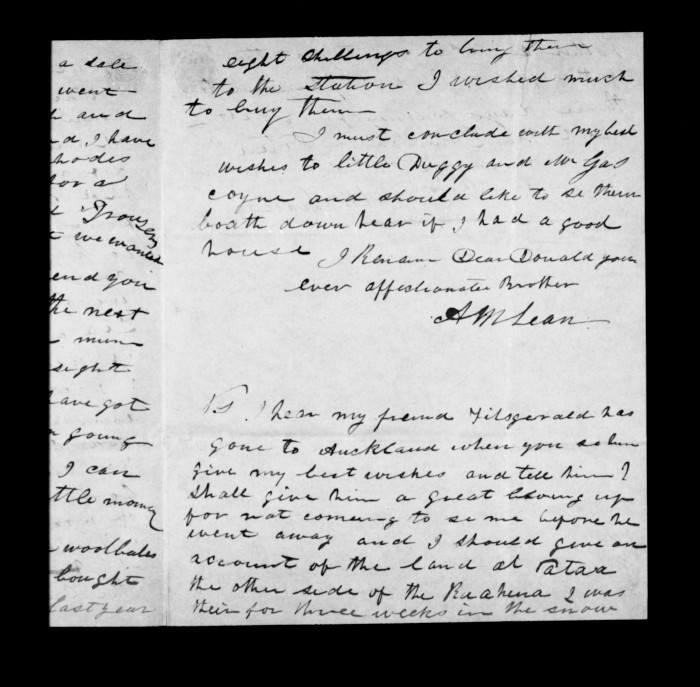 a sale
went
and
d, I have
hodes
for a
Trousers
t we wanted
end you
the next
mum
sight
have got
going
I can
ttle money
woolbales
bought
last year
eight shillings to buy them
to the station I wished much
to buy them
I must conclude with my best
wishes to little Duggy and Mr Gas
coyne and should like to se them
boath down hear if I had a good
house I Remain Dear Donald your
ever affectionatee Brother
A McLean
PS I hear my freind Fitsgerald has
gone to Auckland when you se him
give my best wishes and tell him I
shall give him a great blowing up
for not comeing to se me before he
went away and I should give an
account of the land at Pataa
the other side of the Ruahena I was
their for three weeks in the snow